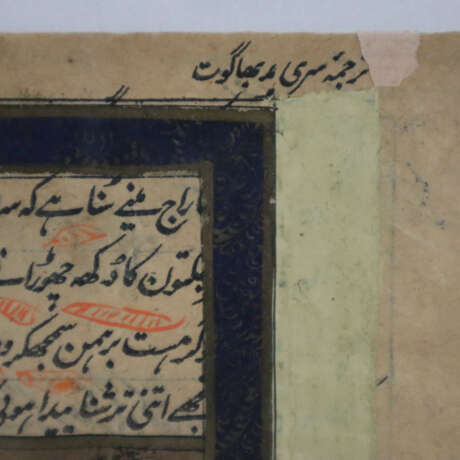 ترجمۂ سری مدبھاگوت
راج مینے سُنا ہے کہ
بھگتون کا دُکھ چھوڑانے
گرہست برہمن سمجھکر
مجھے اتنی ترشنا پیدا ہوئی